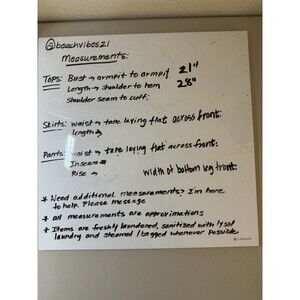 @beachvibes21
Measurements:
Tops: Bust → armpit to armpit 21"
Length → shoulder to hem 28"
Shoulder seam to cuff:
Skirts: waist → tape laying flat across front:
length →
Pants: waist → tape laying flat across front:
Inseam →
Rise → width of bottom leg front:
* Need additional measurements? I'm here
to help. Please message
* all measurements are approximations
* Items are freshly laundered, sanitized with lysol
laundry and steamed / bagged whenever possible